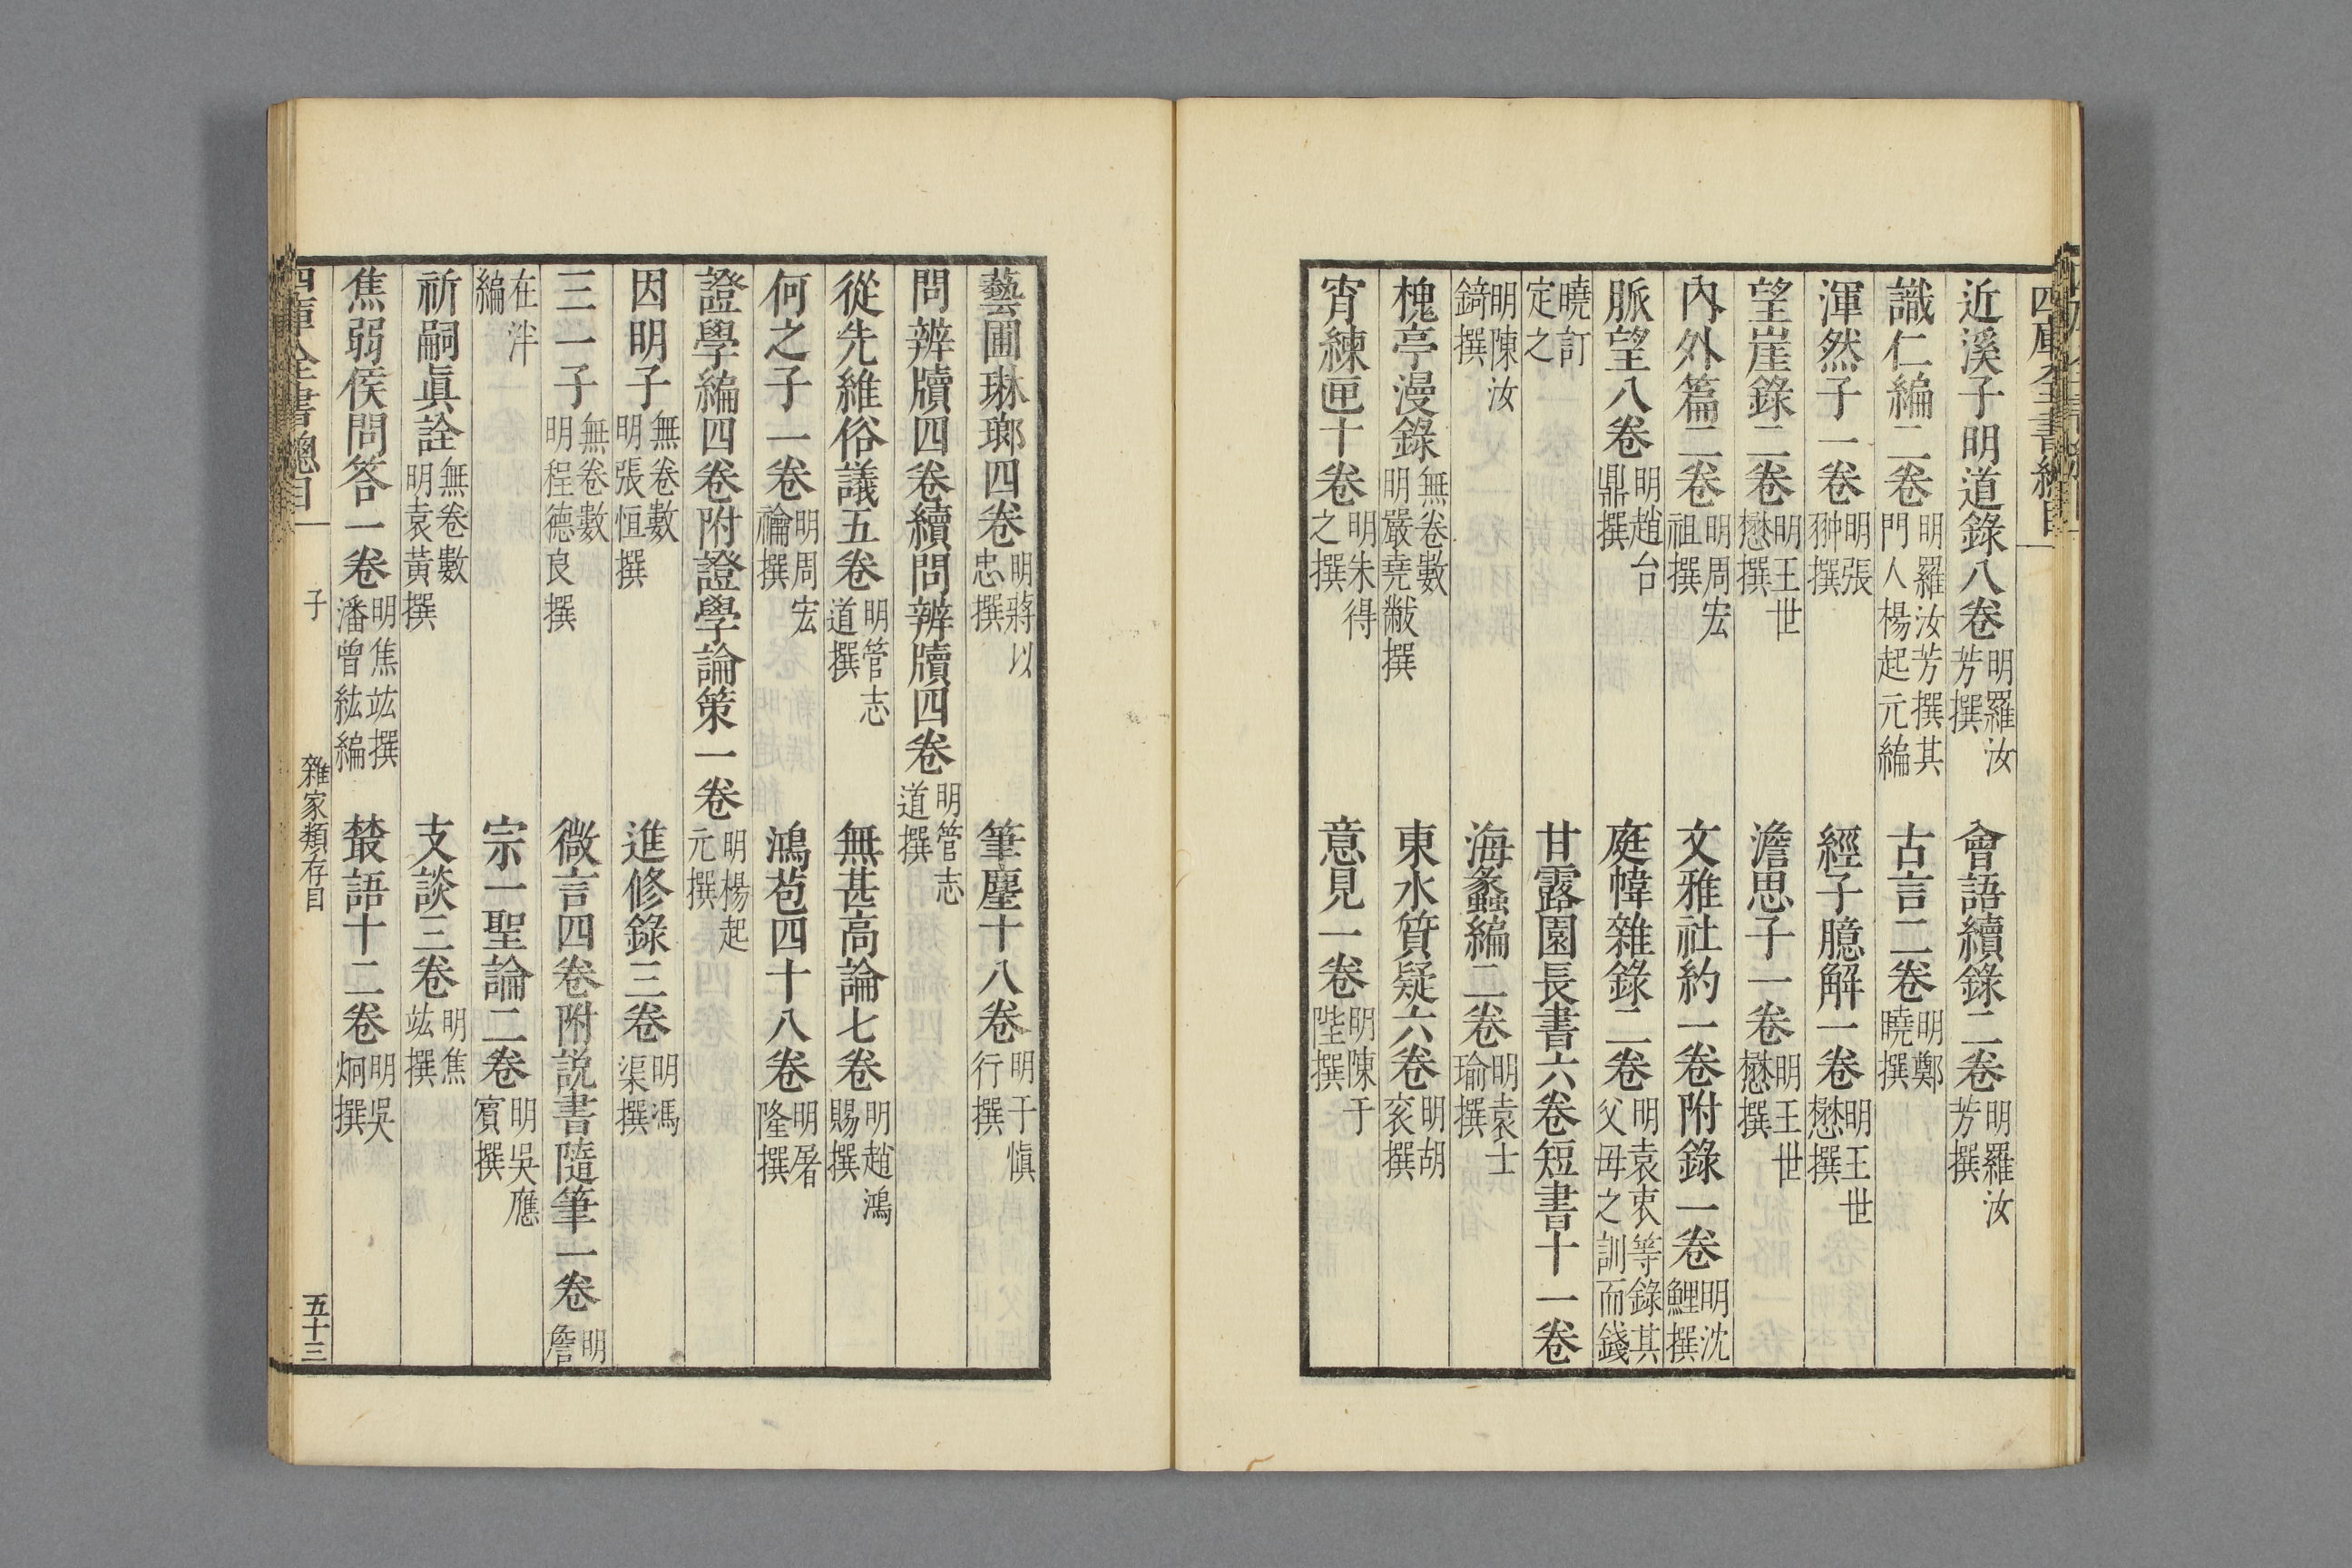 四庫全書總目
近溪子明道錄八卷明羅汝芳撰 會語續錄二卷明羅汝芳撰
識仁編二卷明羅汝芳撰其門人楊起元編 古言二卷明鄭曉撰
渾然子一卷明張翀撰 經子臆解一卷明王世懋撰
望崖錄二卷明王世懋撰 澹思子一卷明王世懋撰
內外篇二卷明周宏祖撰 文雅社約一卷附錄一卷明沈鯉撰
脈望八卷明趙台鼎撰 庭幃雜錄二卷明袁衷等錄其父母之訓而錢
曉訂定之 甘露園長書六卷短書十一卷
明陳汝錡撰 海蠡編二卷明袁士瑜撰
槐亭漫錄無卷數明嚴堯黻撰 東水質疑六卷明胡袞撰
宵練匣十卷明朱得之撰 意見一卷明陳于陛撰
藝圃琳瑯四卷明蔣以忠撰 筆麈十八卷明于愼行撰
問辨牘四卷續問辨牘四卷明管志道撰
從先維俗議五卷明管志道撰 無甚高論七卷明趙鴻賜撰
何之子一卷明周宏禴撰 鴻苞四十八卷明屠隆撰
證學編四卷附證學論策一卷明楊起元撰
因明子無卷數明張恒撰 進修錄三卷明馮渠撰
三一子無卷數明程德良撰 微言四卷附說書隨筆一卷明詹
在泮編 宗一聖論二卷明吳應賓撰
祈嗣眞詮無卷數明袁黃撰 支談三卷明焦竑撰
焦弱侯問答一卷明焦竑撰潘曾紘編 叢語十二卷明吳炯撰
四庫全書總目 子 雜家類存目 五十三